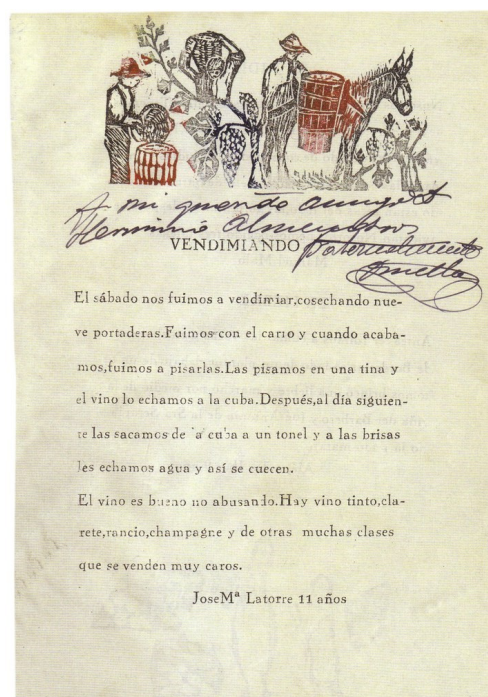 A mi querido amigo
Herminio Almendros
VENDIMIANDO
El sábado nos fuimos a vendimiar,cosechando nue-
ve portaderas.Fuimos con el carro y cuando acaba-
mos,fuimos a pisarlas.Las pisamos en una tina y
el vino lo echamos a la cuba.Después,al día siguien-
te las sacamos de la cuba a un tonel y a las brisas
les echamos agua y así se cuecen.
El vino es bueno no abusando.Hay vino tinto,cla-
rete,rancio,champagne y de otras muchas clases
que se venden muy caros.
JoseMª Latorre 11 años